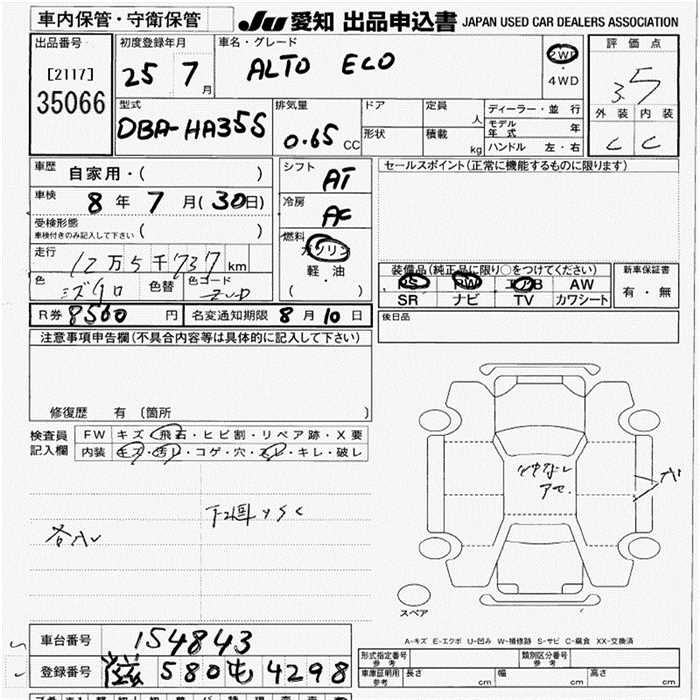 車内保管・守衛保管
JU 愛知 出品申込書 JAPAN USED CAR DEALERS ASSOCIATION
出品番号
[2117]
35066
初度登録年月
25 7 月
車名・グレード
ALTO ECO
2WD
・
4WD
評価点
3.5
外装 内装
C C
型式
DBA-HA35S
排気量
0.65 CC
ドア
定員
人
形状
積載
kg
ディーラー・並行
モデル年式 年
ハンドル 左・右
車歴 自家用・( )
車検 8 年 7 月 (30日)
受検形態
車検付きのみ記入して下さい ( )
走行 12万5千737 km
色 ミズイロ 色替 色コード ZUD
シフト AT
冷房 AC
燃料 ガソリン
・
軽油
( )
セールスポイント(正常に機能するものに限ります)
装備品(純正品に限り○をつけてください)
PS PW エアB AW
SR ナビ TV カワシート
新車保証書
有・無
R券 8560 円 名変通知期限 8 月 10 日
後日品
注意事項申告欄(不具合内容等は具体的に記入して下さい)
修復歴 有 (箇所 )
検査員記入欄
FW キズ・飛石・ヒビ割・リペア跡・X要
内装 キズ・汚レ・コゲ・穴・スレ・キレ・破レ
スペア
A-キズ E-エクボ U-凹み W-補修跡 S-サビ C-腐食 XX-交換済
車台番号 154843
登録番号 580 4298
形式指定番号 参考
類別区分番号 参考
車庫証明用 参考 長さ cm 幅 cm 高さ cm